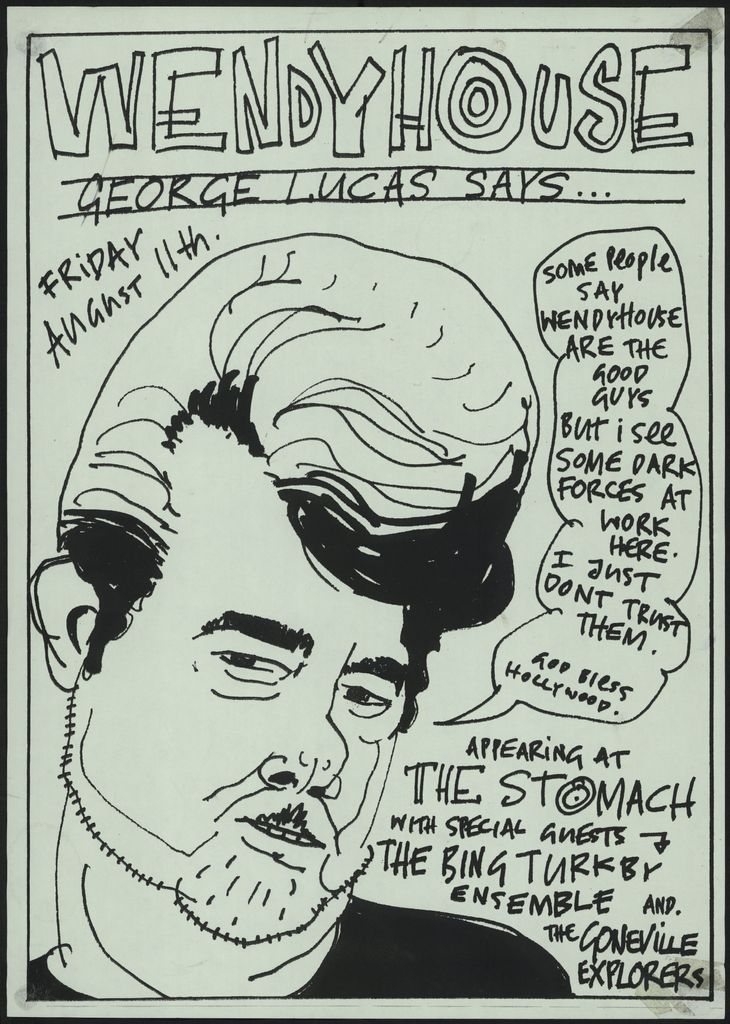 WENDYHOUSE
GEORGE LUCAS SAYS...
FRIDAY
AUGUST 11th.
SOME PEOPLE
SAY
WENDYHOUSE
ARE THE
GOOD
GUYS
BUT i SEE
SOME DARK
FORCES AT
WORK
HERE.
I JUST
DONT TRUST
THEM.
GOD BLESS
HOLLYWOOD.
APPEARING AT
THE STOMACH
WITH SPECIAL GUESTS
THE BING TURKBY
ENSEMBLE AND.
THE GONEVILLE
EXPLORERS